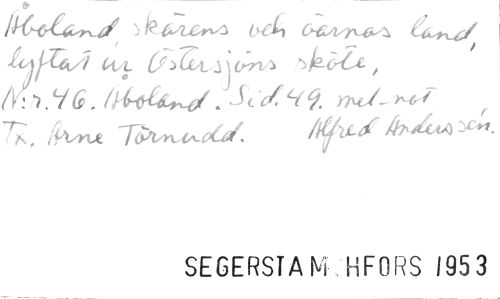 Åboland, skärens och öarnas land,
lyftat ur Östersjöns sköte,
N:r. 46. Åboland. Sid. 49. mel-not
Tx. Arne Törnudd. Alfred Anderssén.
SEGERSTAM HFORS 1953